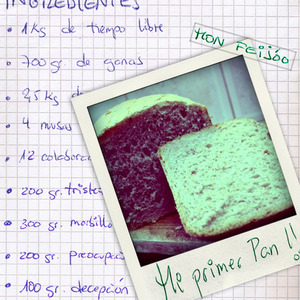 INGREDIENTES
• 1 Kg de tiempo libre
MON FEIJÓO
• 700 gr. de ganas
• 2,5 Kg de
• 4 musas
• 12 colaborac
• 200 gr. tristez
• 300 gr. morbillo
• 200 gr. preocupaci
• 100 gr. decepción
Me primer Pan !!